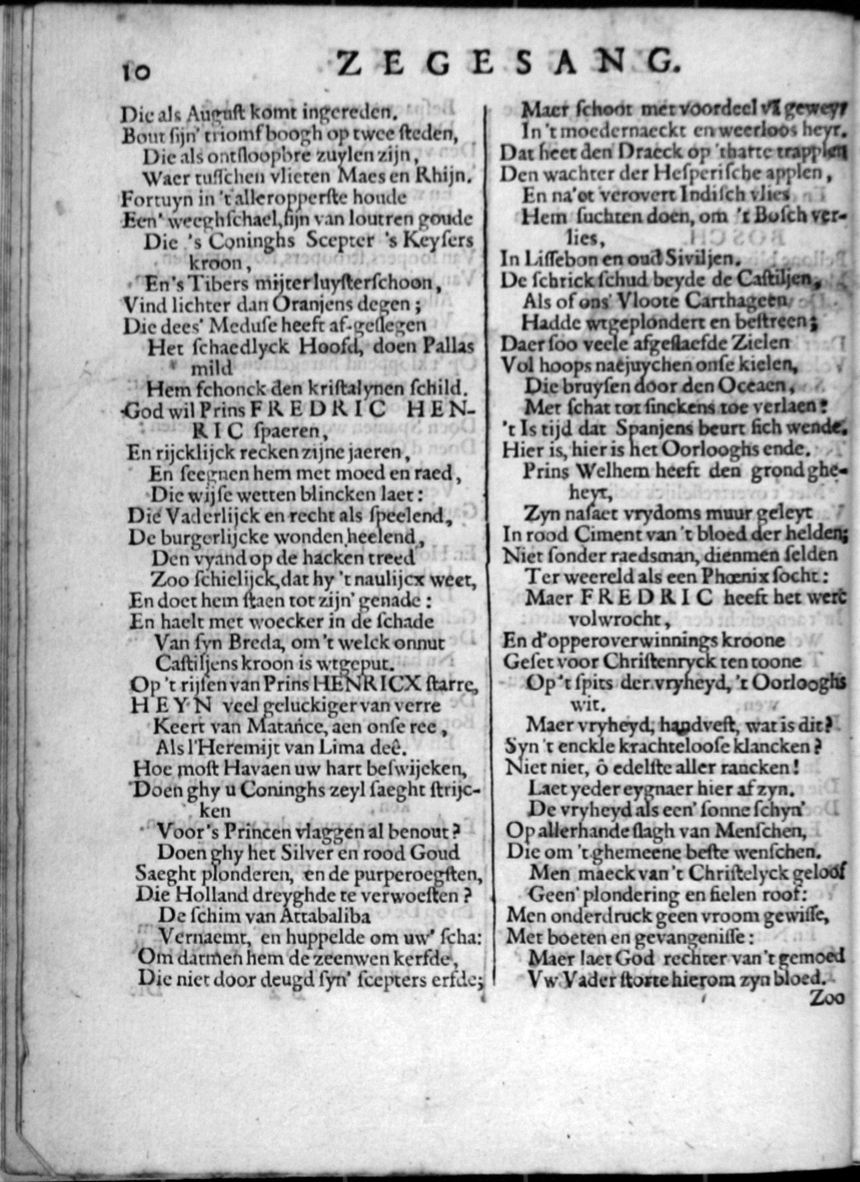 10
ZEGESANG.
Die als Auguſt komt ingereden.
Bout ſijn' triomf boogh op twee ſteden,
Die als ontſloopbre zuylen zijn,
Waer tuſſchen vlieten Maes en Rhijn.
Fortuyn in 't alleropperſte houde
Een' weeghſchael, ſijn van loutren goude
Die 's Coninghs Scepter 's Keyſers
kroon,
En's Tibers mijter luyſterſchoon,
Vind lichter dan Oranjens degen;
Die dees' Meduſe heeft af-geſlegen
Het ſchaedlyck Hoofd, doen Pallas
mild
Hem ſchonck den kriſtalynen ſchild.
God wil Prins FREDRIC HEN-
RIC ſpaeren,
En rijcklijck recken zijne jaeren,
En ſeegnen hem met moed en raed,
Die wijſe wetten blincken laet:
Die Vaderlijck en recht als ſpeelend,
De burgerlijcke wonden heelend,
Den vyand op de hacken treed
Zoo ſchielijck, dat hy 't naulijcx weet,
En doet hem ſtaen tot zijn' genade:
En haelt met woecker in de ſchade
Van ſyn Breda, om 't welck onnut
Caſtiljens kroon is wtgeput.
Op 't rijſen van Prins HENRICX ſtarre,
HEYN veel geluckiger van verre
Keert van Matance, aen onſe ree,
Als l'Heremijt van Lima deê.
Hoe moſt Havaen uw hart beſwijcken,
Doen ghy u Coninghs zeyl ſaeght ſtrijc-
ken
Voor's Princen vlaggen al benout?
Doen ghy het Silver en rood Goud
Saeght plonderen, en de purperoegſten,
Die Holland dreyghde te verwoeſten?
De ſchim van Attabaliba
Vernaemt, en huppelde om uw' ſcha:
Om datmen hem de zeenwen kerfde,
Die niet door deugd ſyn' ſcepters erfde;
Maer ſchoot met voordeel ut geweyr
In 't moedernaeckt en weerloos heyr.
Dat heet den Draeck op 't harte trapplen
Den wachter der Heſperiſche applen,
En na'et verovert Indiſch vlies
Hem ſuchten doen, om 't Boſch ver-
lies,
In Liſſebon en oud Siviljen.
De ſchrick ſchud beyde de Caſtiljen,
Als of ons' Vloote Carthageen
Hadde wtgeplondert en beſtreen;
Daer ſoo veele afgeſlaefde Zielen
Vol hoops naejuychen onſe kielen,
Die bruyſen door den Oceaen,
Met ſchat tot ſinckens toe verlaen!
't Is tijd dat Spanjens beurt ſich wende.
Hier is, hier is het Oorlooghs ende.
Prins Welhem heeft den grond ghe-
heyt,
Zyn naſaet vrydoms muur geleyt
In rood Ciment van 't bloed der helden;
Niet ſonder raedsman, dienmen ſelden
Ter weereld als een Phœnix ſocht:
Maer FREDRIC heeft het werc
volwrocht,
En d'opperoverwinnings kroone
Geſet voor Chriſtenryck ten toone
Op 't ſpits der vryheyd, 't Oorlooghs
wit.
Maer vryheyd, handveſt, wat is dit?
Syn 't enckle krachteloose klancken?
Niet niet, ô edelſte aller rancken!
Laet yeder eygnaer hier af zyn.
De vryheyd als een' ſonne ſchyn'
Op allerhande ſlagh van Menſchen,
Die om 't ghemeene beſte wenſchen.
Men maeck van 't Chriſtelyck geloof
Geen' plondering en ſielen roof:
Men onderdruck geen vroom gewiſſe,
Met boeten en gevangeniſſe:
Maer laet God rechter van 't gemoed
Vw Vader ſtorte hierom zyn bloed.
Zoo